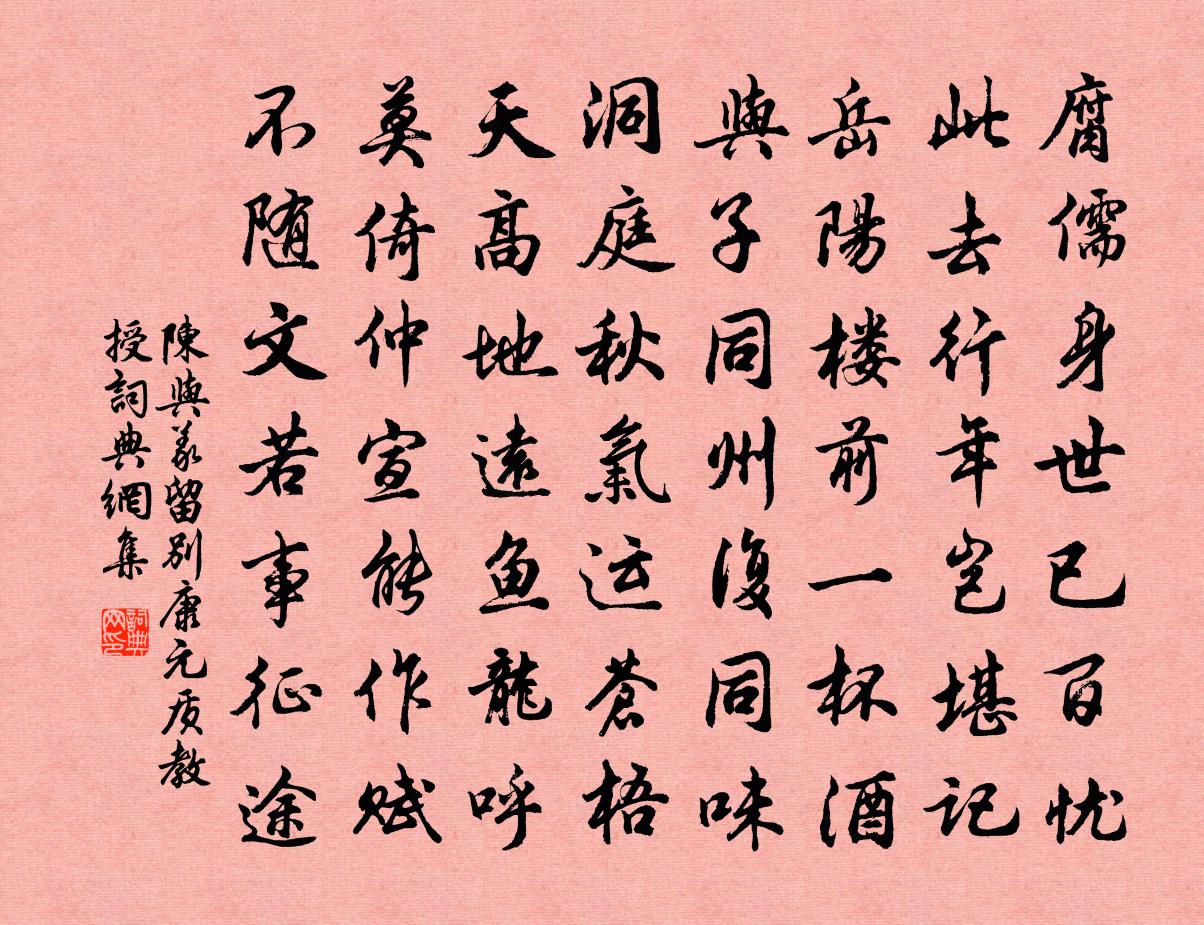 腐儒身世已百忧
此去行年岂堪记
岳陽楼前一杯酒
與子同州復同味
洞庭秋氣运蒼梧
天高地遠鱼龍呼
莫倚仲宣能作赋
不随文若事征途
陳與義留别康元质教
授詞典網集
詞典网印